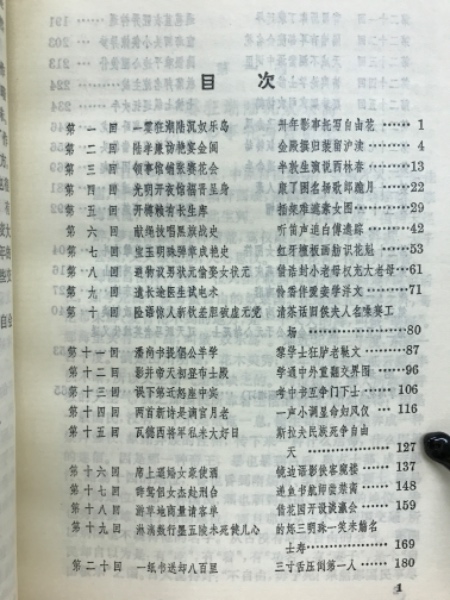 目 次
第一回 一霎狂潮陆沉奴乐岛 卅年影事托写自由花 1
第二回 陆孝廉访艳宴金阊 金殿撰归装留沪渎 4
第三回 领事馆铺张赛花会 半敦生演说西林春 13
第四回 光明开夜馆福晋呈身 康了困名场歌郎跪月 22
第五回 开樽赖有长生库 插架难遮素女图 29
第六回 献绳技唱黑旗战史 听笛声追白傅遗踪 42
第七回 宝玉明珠弹章成艳史 红牙檀板画舫识花魁 53
第八回 避物议男状元偷娶女状元 借诰封小老母权充大老母 61
第九回 遣长途医生试电术 怜香伴爱妾学洋文 71
第十回 险语惊人新钦差胆破虚无党 清茶话旧侯夫人名噪赛工
场 80
第十一回 潘尚书提倡公羊学 黎学士狂胪老鞑文 87
第十二回 影并帝天初登布士殿 学通中外重翻交界图 96
第十三回 误下第迁怒座中宾 考中书互争门下士 106
第十四回 两首新诗是谪官月老 一声小调显命妇风仪 116
第十五回 瓦德西将军私来大好日 斯拉夫民族死争自由
天 127
第十六回 席上逼婚女豪使酒 镜边语影侠客窥楼 137
第十七回 辞鸳侣女杰赴刑台 递鱼书航师尝禁脔 148
第十八回 游草地商量请客单 借花园开设谈瀛会 159
第十九回 淋漓数行墨五陵未死健儿心 的烁三明珠一笑来觞名
士寿 169
第二十回 一纸书送却八百里 三寸舌压倒第一人 180
1